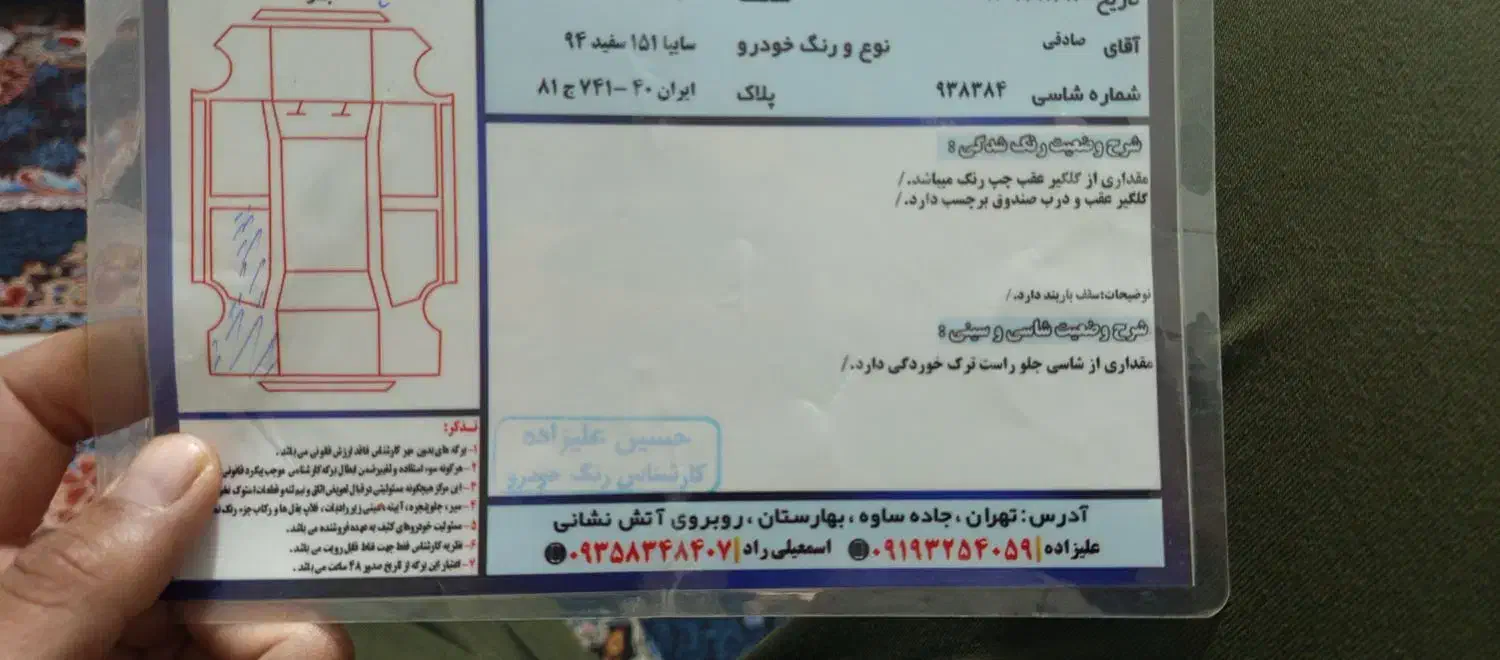 تاریخ
آقای صادقی نوع و رنگ خودرو سایپا ۱۵۱ سفید ۹۴
شماره شاسی ۹۳۸۳۸۴ پلاک ایران ۴۰ – ۷۴۱ ج ۸۱
شرح وضعیت رنگ شدگی :
مقداری از گلگیر عقب چپ رنگ میباشد./
گلگیر عقب و درب صندوق برچسب دارد./
توضیحات:سقف باربند دارد./
شرح وضعیت شاسی و سینی :
مقداری از شاسی جلو راست ترک خوردگی دارد./
حسین علیزاده
کارشناس رنگ خودرو
تذکر:
۱- برگه های بدون مهر کارشناس فاقد ارزش قانونی می باشد .
۲- هرگونه سوء استفاده و تغییر ضمن ابطال برگه کارشناسی موجب پیگرد قانونی
۳- این مرکز هیچگونه مسئولیتی در قبال تعویض اتاق و نیم تنه و قطعات استوک
۴- سپر، جلوپنجره، آیینه
۵- مسئولیت خودروهای کثیف به عهده فروشنده می باشد.
۶- نظریه کارشناس فقط جهت نقاط قابل رویت می باشد .
۷- اعتبار این برگه از تاریخ صدور ۴۸ ساعت می باشد .
آدرس: تهران ، جاده ساوه ، بهارستان ، روبروی آتش نشانی
علیزاده ۰۹۱۹۳۲۵۴۰۵۹ اسمعیلی راد ۰۹۳۵۸۳۴۸۴۰۷